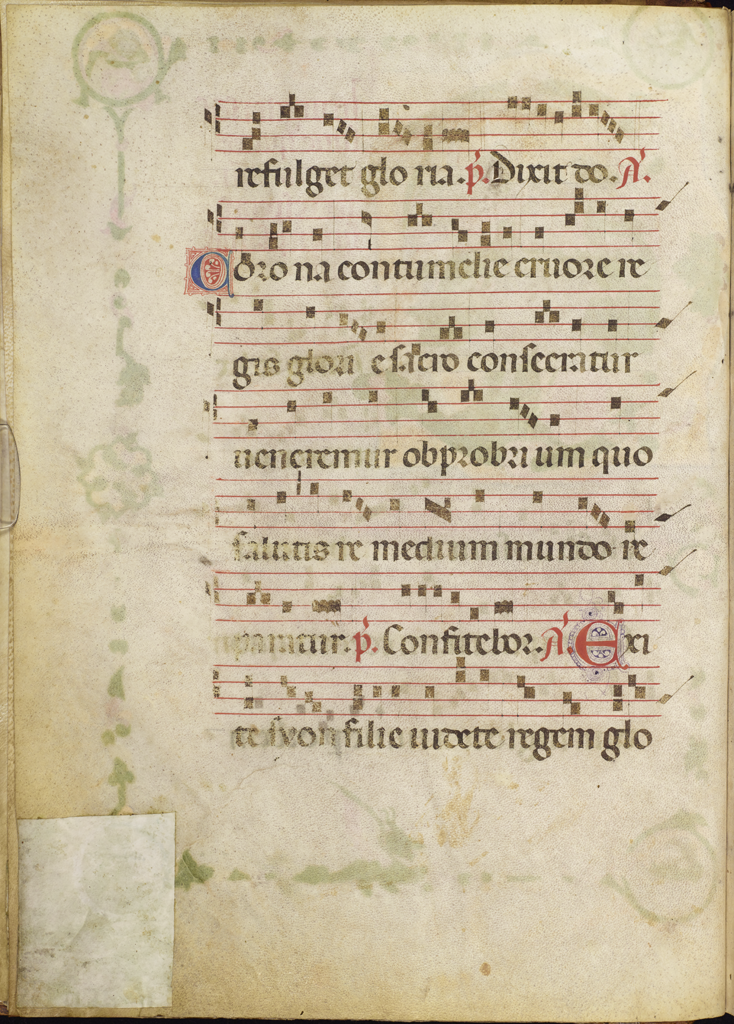 refulget glo ria. p̃. Dixit do. A̓.
Coro na contumelie cruore re
gis glori e sacro consecratur
ueneremur obprobri um quo
salutis re medium mundo re
paratur. p̃. Confitebor. A̓. Exi
te syon filie uidete regem glo